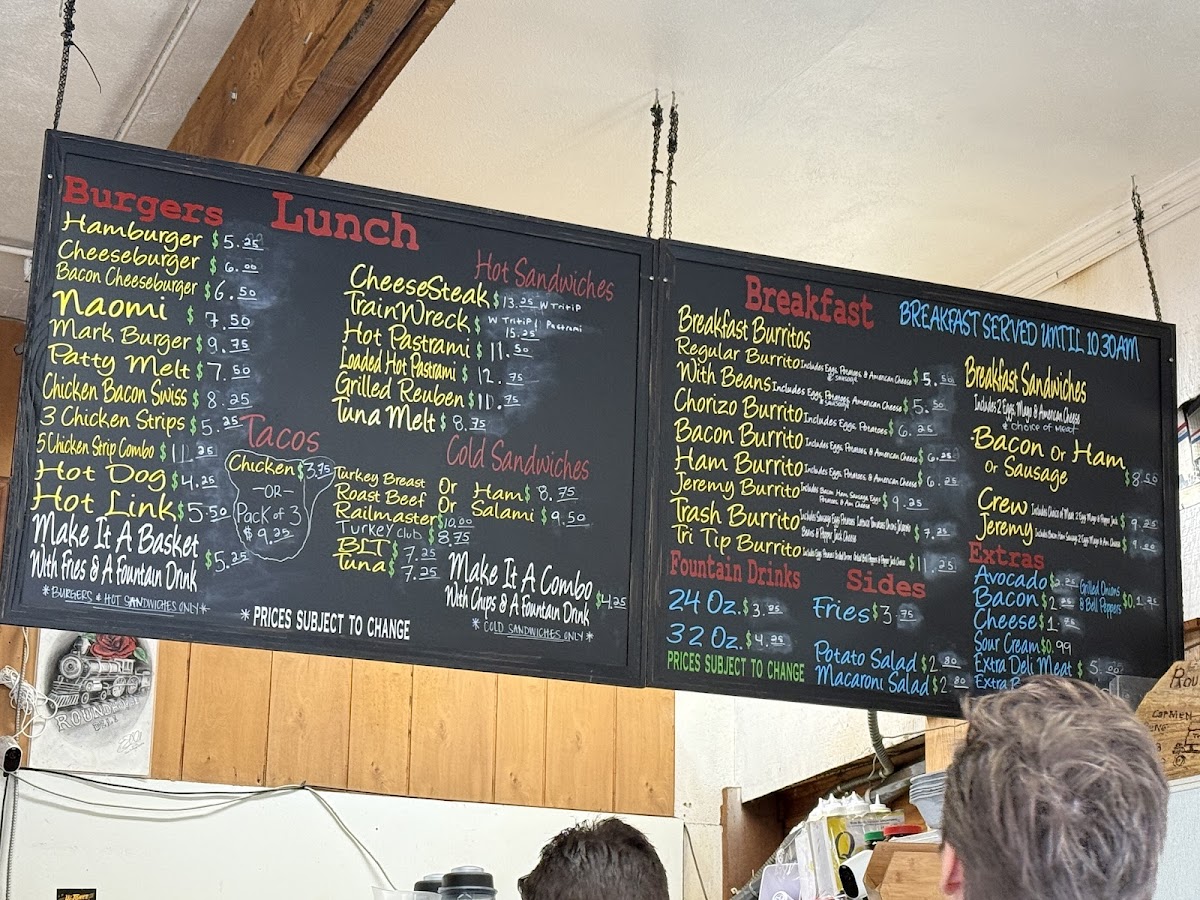 Burgers
Hamburger $5.25
Cheeseburger $6.00
Bacon Cheeseburger $6.50
Naomi $7.50
Mark Burger $9.75
Patty Melt $7.50
Chicken Bacon Swiss $8.25
3 Chicken Strips $5.25
5 Chicken Strip Combo $11.25
Hot Dog $4.25
Hot Link $5.50
Make It A Basket
With Fries & A Fountain Drink $5.25
*BURGERS & HOT SANDWICHES ONLY*
Lunch
Hot Sandwiches
CheeseSteak $13.25 W TritiP
TrainWreck $ W TritiP/ Pastrami
15.25
Hot Pastrami $11.50
Loaded Hot Pastrami $12.75
Grilled Reuben $10.75
Tuna Melt $8.75
Tacos
Chicken $3.75
-OR-
Pack of 3
$9.25
Cold Sandwiches
Turkey Breast Or Ham $8.75
Roast Beef Or Salami $9.50
Railmaster $10.00
Turkey Club $8.75
BLT $7.25
Tuna $7.25
Make It A Combo
With Chips & A Fountain Drink $4.25
*COLD SANDWICHES ONLY*
*PRICES SUBJECT TO CHANGE
Breakfast
BREAKFAST SERVED UNTIL 10 30AM
Breakfast Burritos
Regular Burrito Includes Eggs, Potatoes, & American Cheese $5.50
& sausage
With Beans Includes Eggs, Potatoes American Cheese $5.50
& sausage
Chorizo Burrito Includes Eggs, Potatoes $6.25
Bacon Burrito Includes Eggs, Potatoes, & American Cheese $6.25
Ham Burrito Includes Eggs, Potatoes, & American Cheese $6.25
Jeremy Burrito Includes Bacon Ham Sausage Eggs $9.25
Potatoes & Ami Cheese
Trash Burrito Includes Sausage Eggs Potatoes Lettuce Tomatoes Onions Jalapeño $7.25
Beans & Pepper Jack Cheese
Tri Tip Burrito $11.25
Breakfast Sandwiches
Includes 2 Eggs, Mayo & American Cheese
& choice of meat
Bacon Or Ham
Or Sausage $8.50
Crew Includes Choice of Meat, 2 Eggs Mayo & Pepper Jack $9.25
Jeremy Includes Bacon Ham Sausage 2 Eggs Mayo & Ami Cheese $9.00
Fountain Drinks
24 Oz. $3.25
32 Oz. $4.25
PRICES SUBJECT TO CHANGE
Sides
Fries $3.75
Potato Salad $2.80
Macaroni Salad $2.80
Extras
Avocado $2.25
Grilled Onions
& Bell Peppers
Bacon $2
Cheese $1.75
Sour Cream $0.99
Extra Deli Meat $5.00
Extra
ROUNDHOUSE